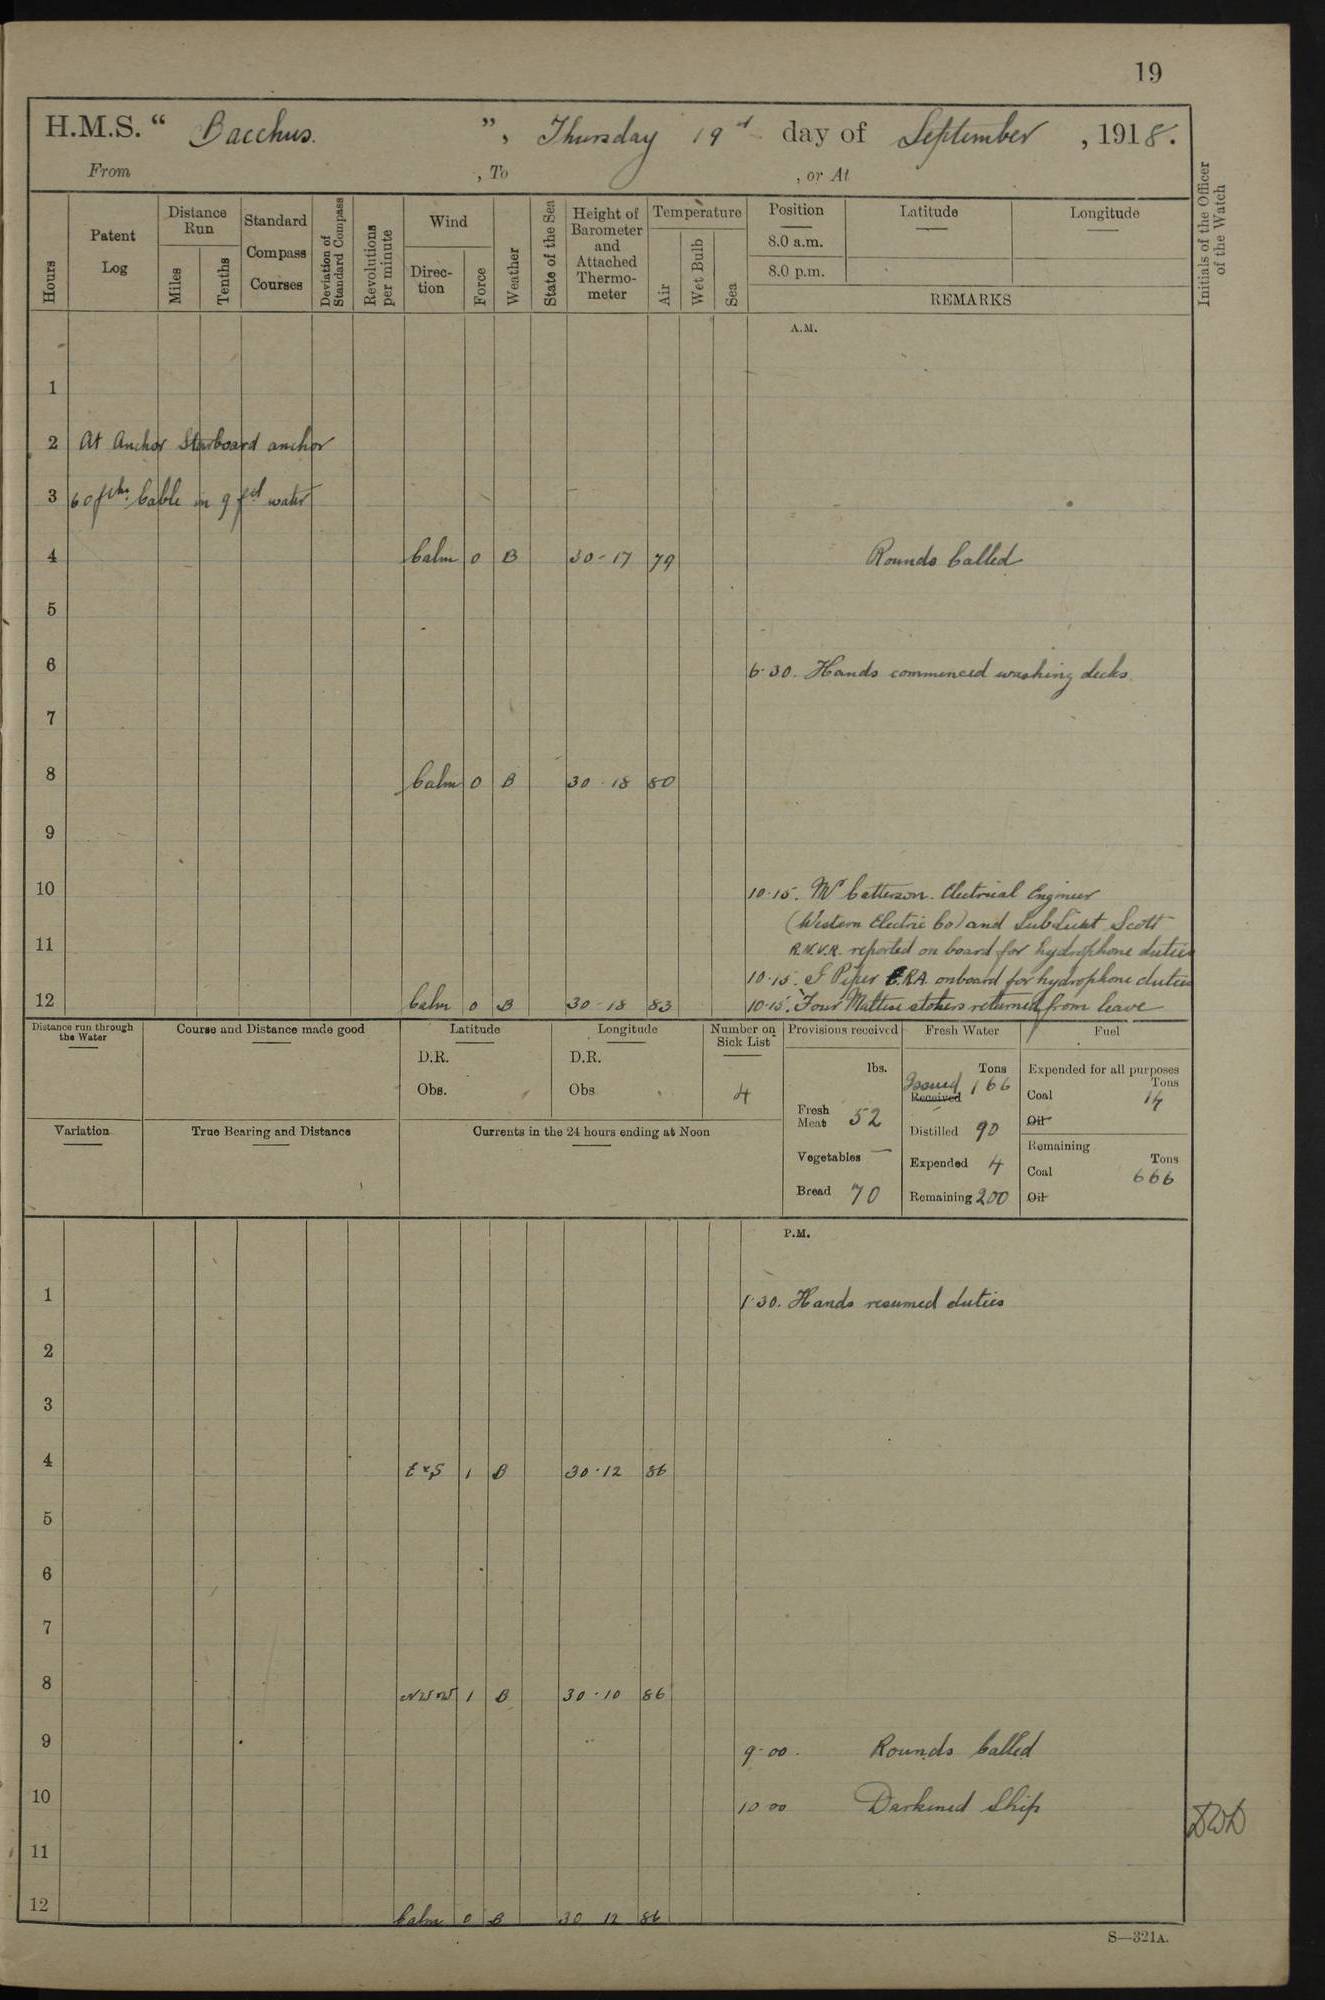 19
H.M.S. “ Bacchus. ”, Thursday 19th day of September , 1918.
From , To , or At
Hours
Patent Log
Distance Run
Miles
Tenths
Standard Compass Courses
Deviation of Standard Compass
Revolutions per minute
Wind
Direction
Force
Weather
State of the Sea
Height of Barometer and Attached Thermometer
Temperature
Air
Wet Bulb
Sea
Position
8.0 a.m.
8.0 p.m.
Latitude
Longitude
REMARKS
Initials of the Officer of the Watch
A.M.
1
2 At Anchor Starboard anchor
3 60 fths. Cable in 9 fth water
4 Calm 0 B 30-17 79 Rounds Called
5
6 6.30. Hands commenced washing decks.
7
8 Calm 0 B 30 - 18 80
9
10 10.15. Mr Catterson. Electrical Engineer
(Western Electric Co) and SubLieut Scott
11 R.N.V.R. reported on board for hydrophone duties
10.15. Piper E.R.A. onboard for hydrophone duties
12 Calm 0 B 30 - 18 83 10.15. Four Maltese stokers returned from leave
Distance run through the Water
Course and Distance made good
Latitude
D.R.
Obs.
Longitude
D.R.
Obs
Number on Sick List
4
Provisions received
lbs.
Fresh Meat 52
Vegetables —
Bread 70
Fresh Water
Tons
Issued 166
Received
Distilled 90
Expended 4
Remaining 200
Fuel
Expended for all purposes
Tons
Coal 14
Oil
Remaining
Tons
Coal 666
Oil
Variation
True Bearing and Distance
Currents in the 24 hours ending at Noon
P.M.
1 1.30. Hands resumed duties
2
3
4 ExS 1 B 30 - 12 86
5
6
7
8 NWxW 1 B 30 - 10 86
9 9-00. Rounds Called
10 10 00 Darkened Ship
DWD
11
12 Calm 0 B 30 12 86
S—321A.